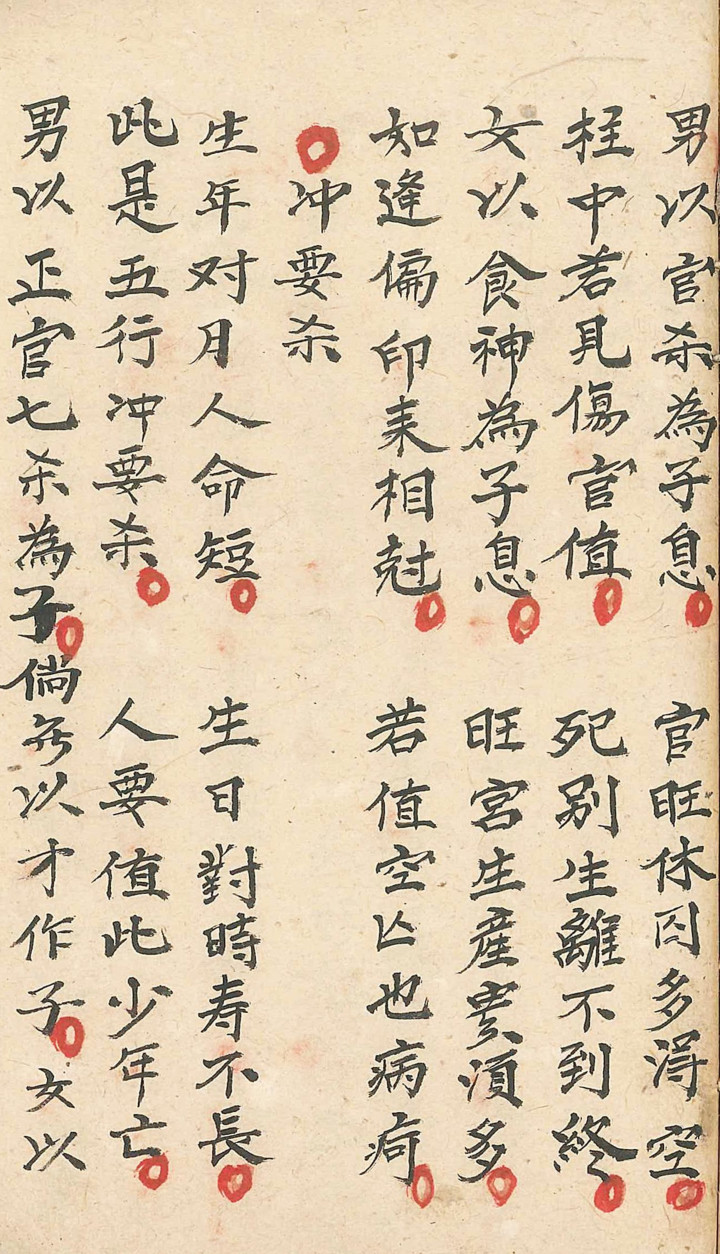 男以官杀為子息 官旺休囚多得空
柱中若見傷官值 死别生離不到終
女以食神為子息 旺宮生產要須多
如逢偏印来相尅 若值空亡也病疴
冲要杀
生年对月人命短 生日對時寿不長
此是五行冲要杀 人要值此少年亡
男以正官七杀為子倘无以才作子 女以